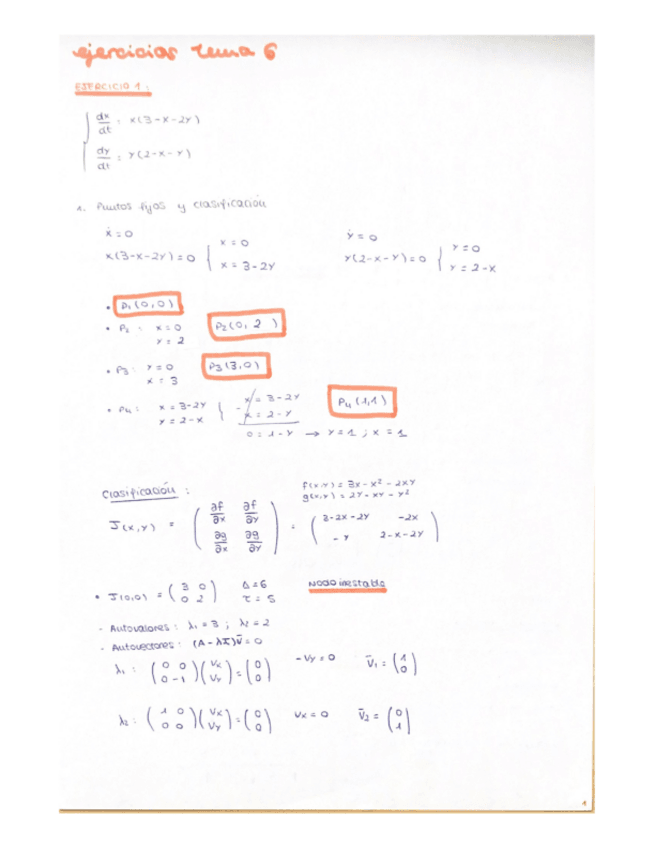 ejercicios tema 6
EJERCICIO 1:
dx/dt = x(3-x-2y)
dy/dt = y(2-x-y)
1. Puntos fijos y clasificación
ẋ = 0
x(3-x-2y)=0 { x = 0
x = 3-2y
ẏ = 0
y(2-x-y)=0 { y = 0
y = 2-x
• P₁(0,0)
• P₂: x = 0
y = 2
P₂(0, 2)
• P₃: y = 0
x = 3
P₃(3,0)
• P₄: x = 3-2y
y = 2-x
x = 3-2y
- x = 2-y
0 = 1-y → y=1 ; x = 1
P₄(1,1)
Clasificación:
f(x,y) = 3x - x² - 2xy
g(x,y) = 2y - xy - y²
J(x,y) = ( ∂f/∂x ∂f/∂y
∂g/∂x ∂g/∂y ) = ( 3-2x-2y -2x
-y 2-x-2y )
• J(0,0) = ( 3 0
0 2 )
Δ=6
τ = 5
Nodo inestable
- Autovalores: λ₁ = 3 ; λ₂ = 2
- Autovectores: (A-λI)v̄ = 0
λ₁: ( 0 0
0 -1 )( Vx
Vy ) = ( 0
0 )
-Vy = 0
v̄₁ = ( 1
0 )
λ₂: ( 1 0
0 0 )( Vx
Vy ) = ( 0
0 )
Vx = 0
v̄₂ = ( 0
1 )
1